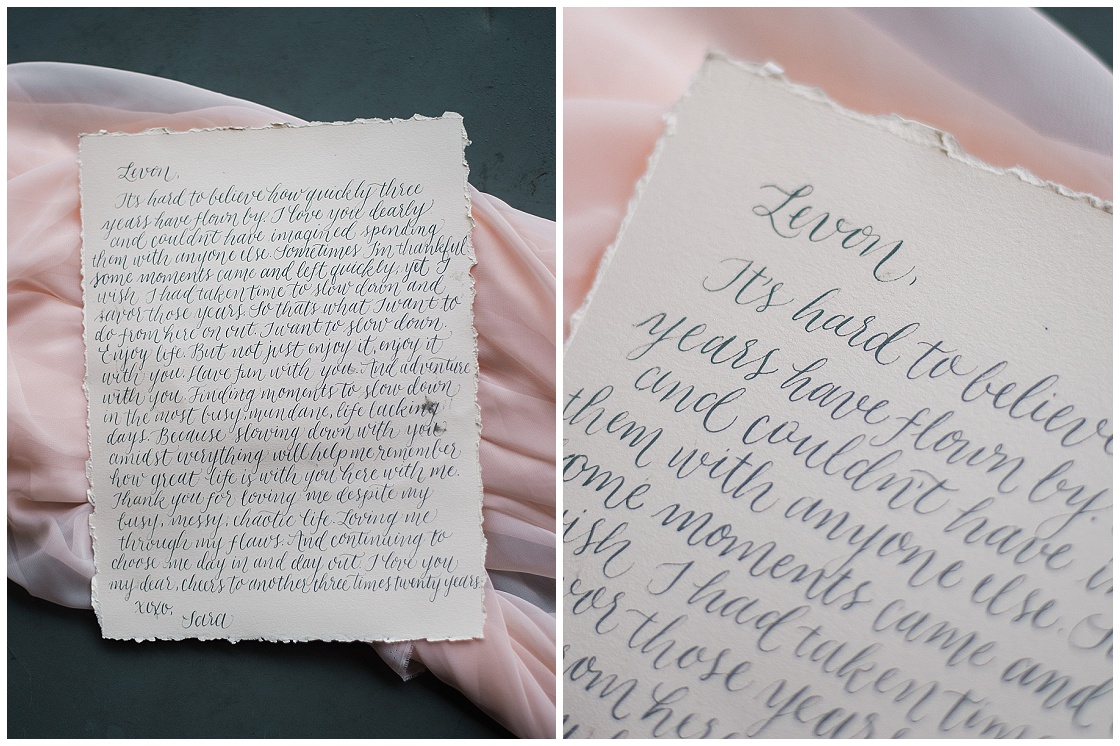 Levon,
It's hard to believe how quickly three
years have flown by. I love you dearly
and couldn't have imagined spending
them with anyone else. Sometimes I'm thankful
some moments came and left quickly, yet I
wish I had taken time to slow down and
savor those years. So thats what I want to
do from here on out. I want to slow down.
Enjoy life. But not just enjoy it, enjoy it
with you. Have fun with you. And adventure
with you. Finding moments to slow down
in the most busy, mundane, life lacking
days. Because slowing down with you
amidst everything will help me remember
how great life is with you here with me.
Thank you for loving me despite my
busy, messy, chaotic life. Loving me
through my flaws. And continuing to
choose me day in and day out. I love you
my dear, cheers to another three times twenty years.
xoxo,
Sara
Levon,
It's hard to believe
years have flown by.
and couldn't have
them with anyone else.
ome moments came and
ish I had taken time
vor those years
om here